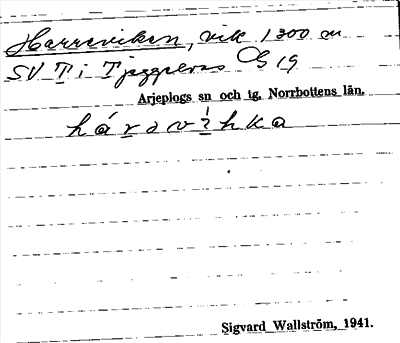 Harreviken, vik 1300 m
SV T i Tjeggelvas
Arjeplogs sn och tg. Norrbottens län.
háravìhka
Sigvard Wallström, 1941.